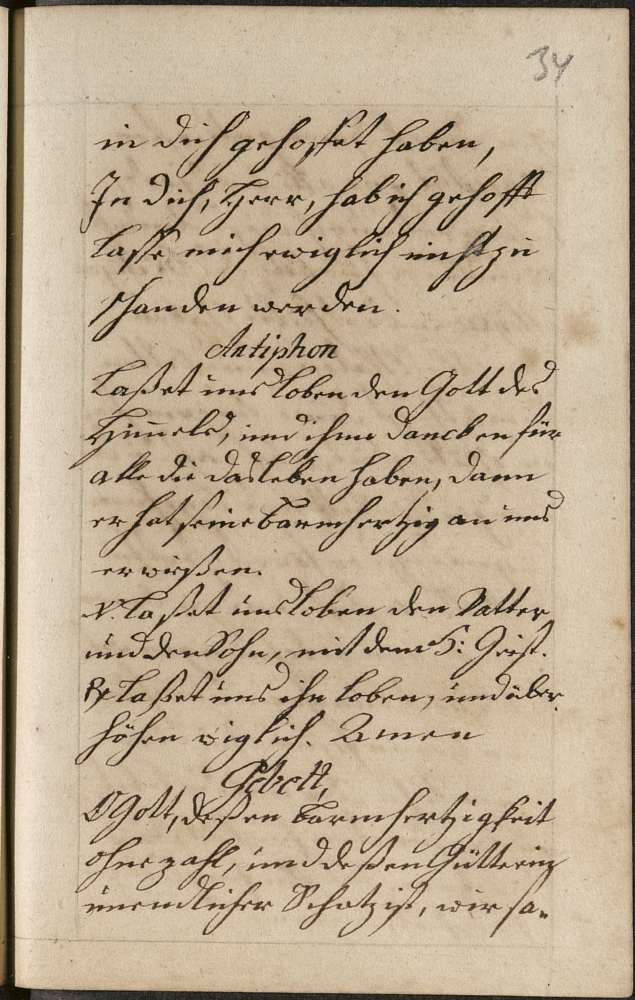 34
in dich gehoffet haben,
In dich, Herr, hab ich gehofft
lasse mich ewiglich nicht zu
schanden werden.
Antiphon
Laßet uns loben den Gott des
Himels, und ihme dancken für
alle die das leben haben, dann
er hat seine barmhertzig an uns
erwießen.
V. Laßet uns loben den Vatter
und den Sohn, mit dem H: Geist.
R Laßet uns ihn loben, und über
höhen wiglich. Amen
Gebett,
O Gott, deßen barmhertzigkeit
ohne zahl, und deßen Gütte ein
unendlicher Schatz ist, wir sa-